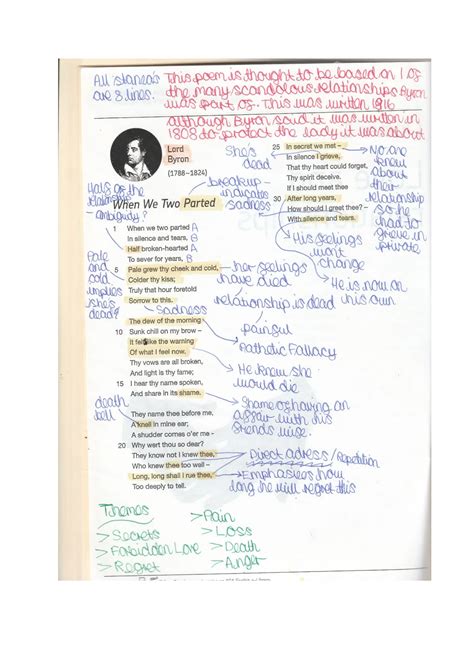 All stanzas
are 8 lines.
This poem is thought to be based on 1 of
the many scandalous relationships Byron
was part of. This was written 1916
although Byron said it was written in
1808 to protect the lady it was about
Lord
Byron
(1788–1824)
Half of the
relationship
ambiguity?
breakup -
indicates
sadness
When We Two Parted
1 When we two parted A
In silence and tears, B
Half broken-hearted A
To sever for years, B
5 Pale grew thy cheek and cold,
Colder thy kiss;
Truly that hour foretold
Sorrow to this.
Pale
and
cold
implies
she's
dead?
her feelings
have died
relationship is dead
sadness
The dew of the morning
10 Sunk chill on my brow –
It felt like the warning
Of what I feel now.
Thy vows are all broken,
And light is thy fame;
15 I hear thy name spoken,
And share in its shame.
painful
Pathetic Fallacy
He knew she
would die
Shame of having an
affair with his
death
kell
They name thee before me,
A knell in mine ear;
A shudder comes o'er me -
20 Why wert thou so dear?
They know not I knew thee,
Who knew thee too well –
Long, long shall I rue thee,
Too deeply to tell.
Direct adress/Repetition
Emphasises how
long he will regret this
She's
dead
25 In secret we met –
In silence I grieve,
That thy heart could forget,
Thy spirit deceive.
If I should meet thee
30 After long years,
How should I greet thee? –
With silence and tears.
No one
knew
about
their
relationship
so he
had to
grieve in
private
His feelings
wont
change
He is now on
his own
Themes
>Secrets
>Forbidden Love
>Regret
>Pain
>Loss
>Death
>Anger